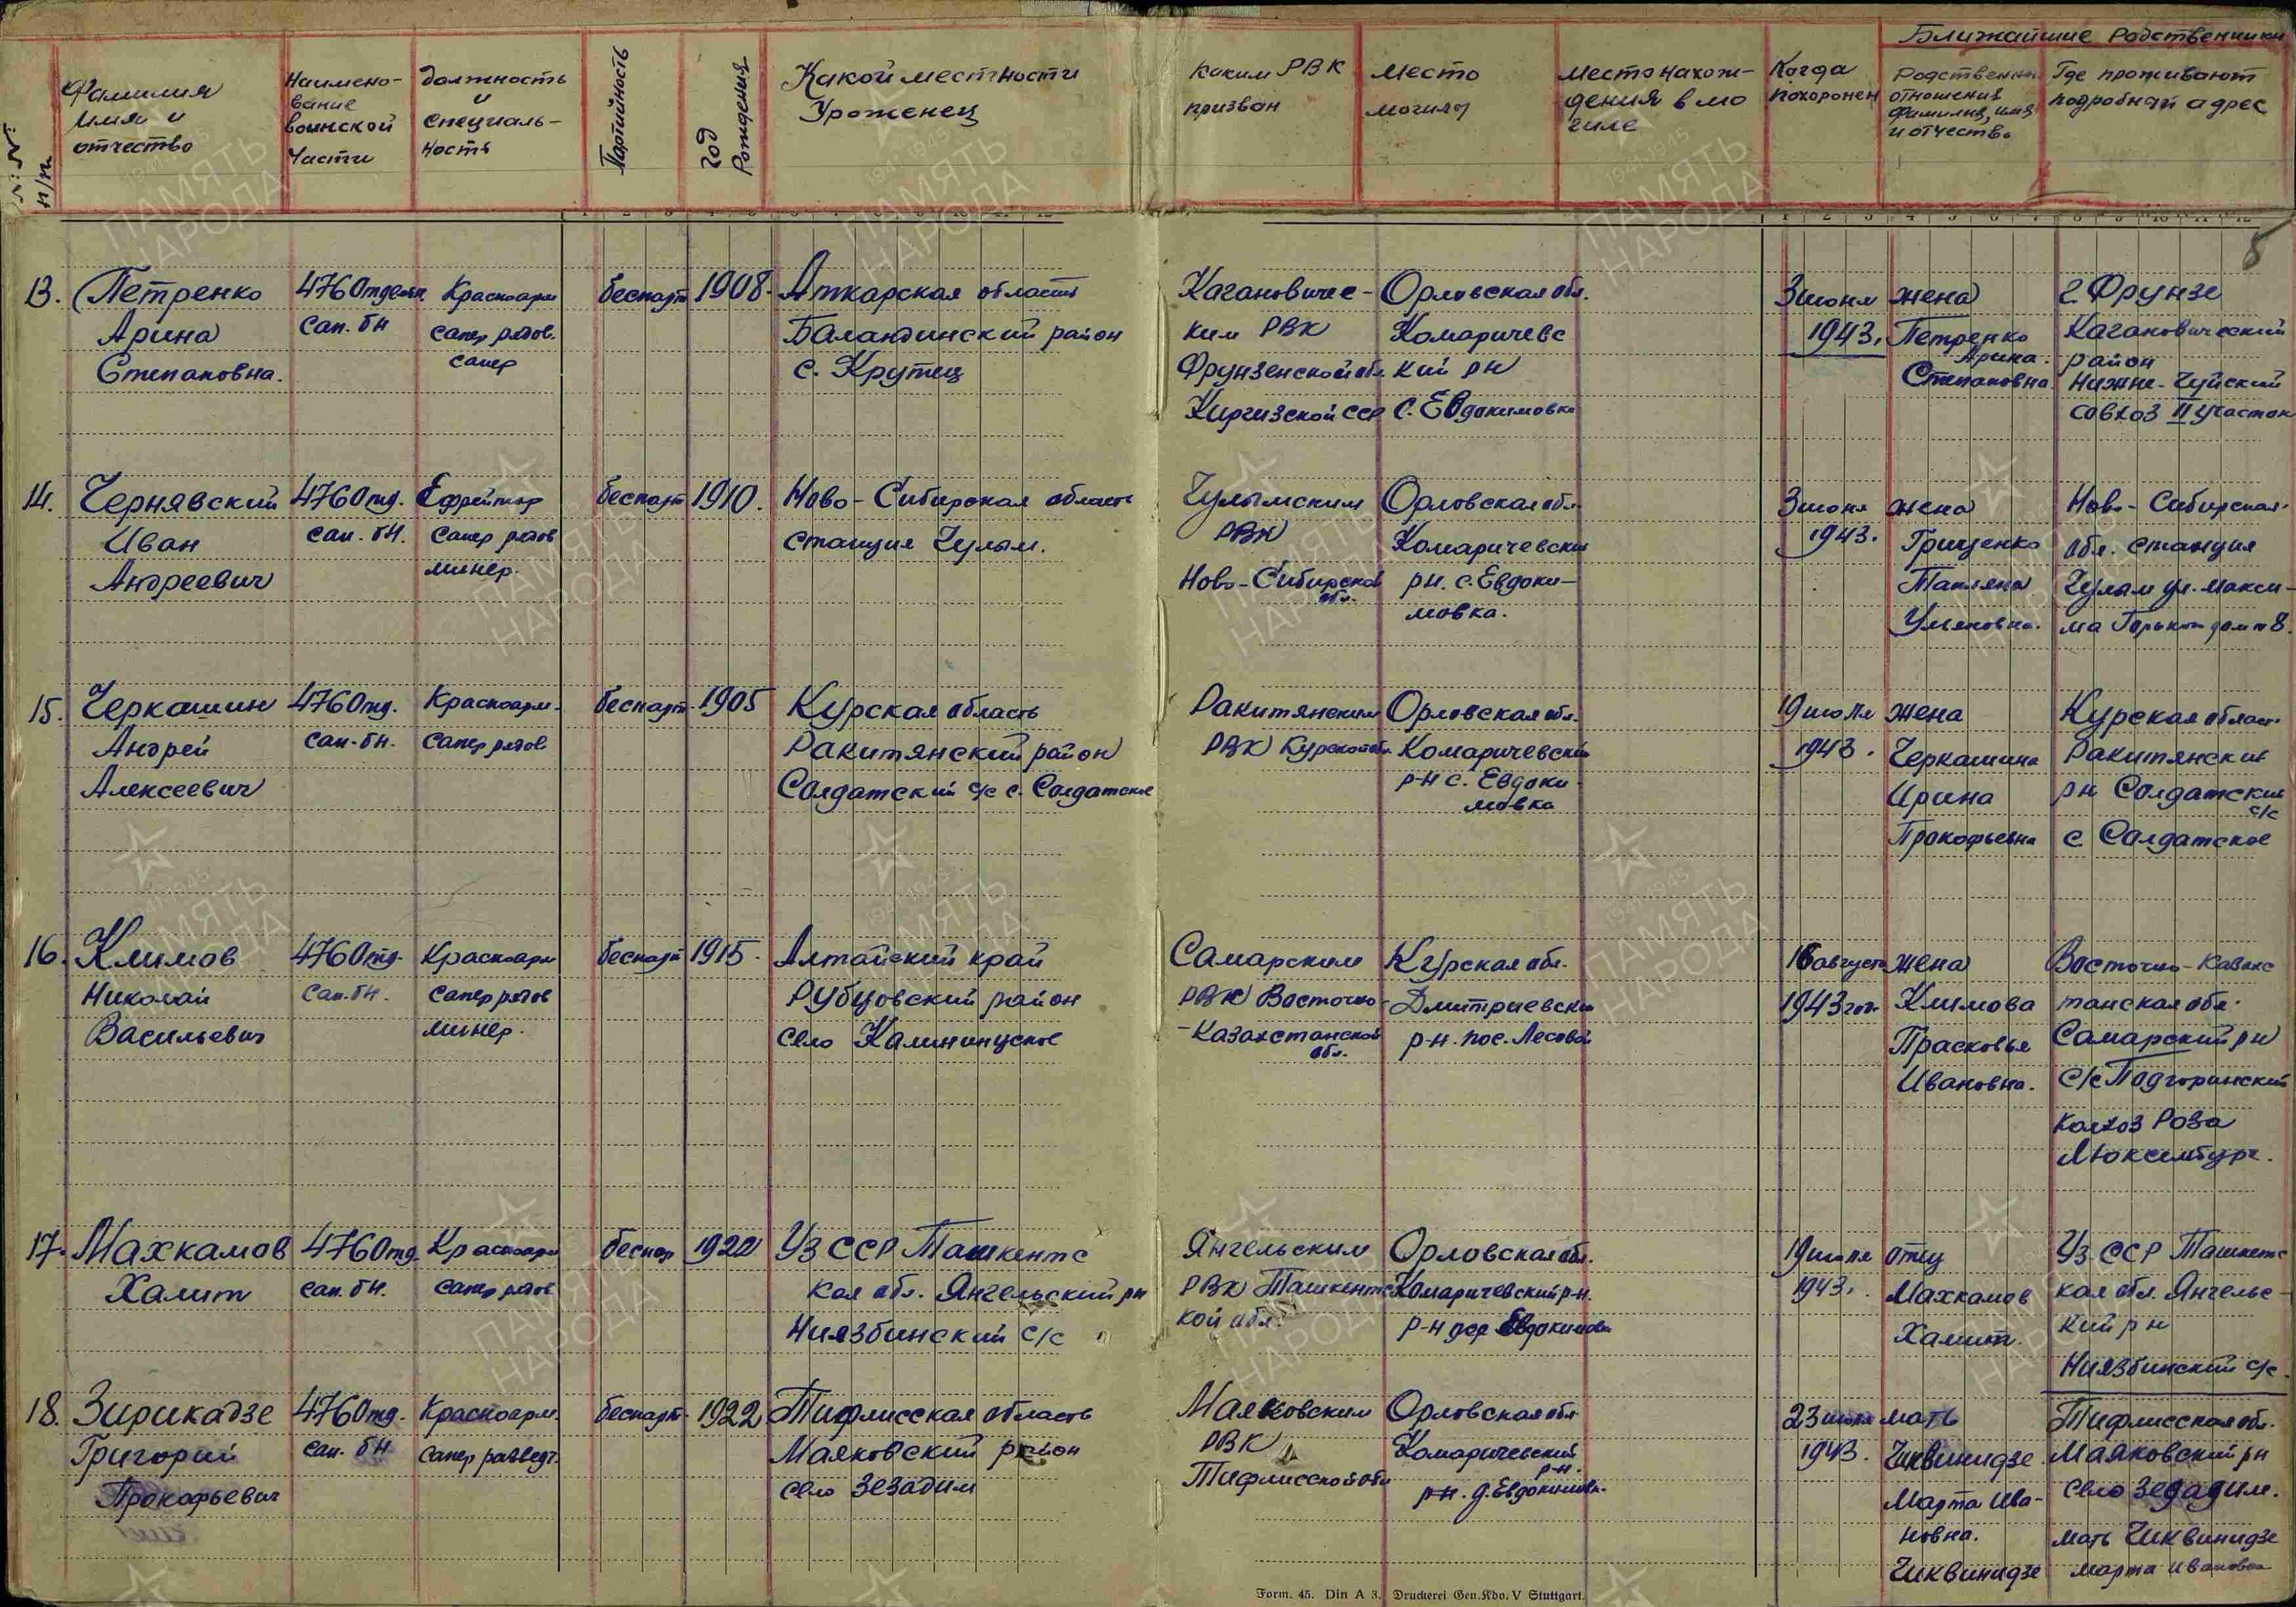 №: №: п/п
Фамилия имя и отчество
Наимено-вание воинской части
Должность и специаль-ность
Партийность
Год Рождения
Какой местности Уроженец
Каким РВК призван
Место могилы
Место нахож-дения в могиле
Когда похоронен
Ближайшие родственники
Родственные отношения фамилия, имя и отчество
Где проживают подробный адрес
8
13. Петренко Арина Степановна.
476 Отдельн. сап. бн
Красноарм сапер рядов. сапер
беспарт
1908.
Аткарская область
Баландинский район
с. Крутец
Кагановичес-
ким РВК
Фрунзенской обл.
Киргизской ССР
Орловская обл.
Комаричевс
кий рн
с. Евдокимовка
3 июня
1943.
жена
Петренко
Арина
Степановна.
г Фрунзе
Кагановический
район
Нижне-Чуйский
совхоз II участок
14. Чернявский
Иван
Андреевич
476 Отд.
сап. бн.
Ефрейтор
сапер рядов
минер.
беспарт
1910.
Ново-Сибирская область
станция Чулым.
Чулымским
РВК
Ново-Сибирской
обл.
Орловская обл.
Комаричевский
рн. с. Евдоки-
мовка.
3 июня
1943.
жена
Грищенко
Татьяна
Ново-Сибирская
обл. станция
Чулым ул. Макси-
ма Горького дом № 8.
15. Черкашин
Андрей
Алексеевич
476 Отд.
сап. бн.
Красноарм.
сапер рядов
беспарт.
1905
Курская область
Ракитянский район
Солдатский с/с с. Солдатское
Ракитянским
РВК Курской обл.
Орловская обл.
Комаричевский
р-н с. Евдоки-
мовка
19 июля
1943.
жена
Черкашина
Ирина
Прокофьевна
Курская област.
Ракитянский
рн Солдатский
с/с
с Солдатское
16. Климов
Николай
Васильевич
476 Отд.
сап. бн.
Красноарм
сапер рядов
минер.
беспарт
1915.
Алтайский край
Рубцовский район
село Калининуское
Самарским
РВК Восточно-
-Казахстанской
обл.
Курская обл.
Дмитриевский
р-н. пос. Лесовой
16 августа
1943 год.
жена
Климова
Прасковья
Ивановна.
Восточно-Казахс
танская обл.
Самарский рн
с/с Подгоринский
колхоз Роза
Люксембург.
17. Махкамов
Халит
476 Отд.
сап. бн.
Красноарм
сапер рядов
беспар
1922
Уз ССР Ташкентс
кая обл. Янгельский рн
Ниязбинский с/с
Янгельским
РВК Ташкентс
кой обл.
Орловская обл.
Комаричевский р-н.
р-н дер Евдокимовка
19 июля
1943.
отец
Махкамов
Халит.
Уз. ССР Ташкентс
кая обл. Янгельс-
кий рн
Ниязбинский с/с.
18. Зирикадзе
Григорий
Прокофьевич
476 Отд.
сап. бн
Красноарм.
сапер разведч.
беспарт.
1922
Тифлисская область
Маяковский район
село Зезадим
Маяковским
РВК
Тифлисской обл
Орловская обл
Комаричевский
р-н.
рн. д. Евдокимовка.
23 июля
1943.
мать
Чиквинидзе
Марта Ива-
новна.
Чиквинидзе
Тифлисская обл.
Маяковский рн
село Зедадим.
мать Чиквинидзе
Марта Ивановна
Form. 45. Din A 3. Druckerei Gen.Kdo. V Stuttgart.
ПАМЯТЬ НАРОДА
1941-1945